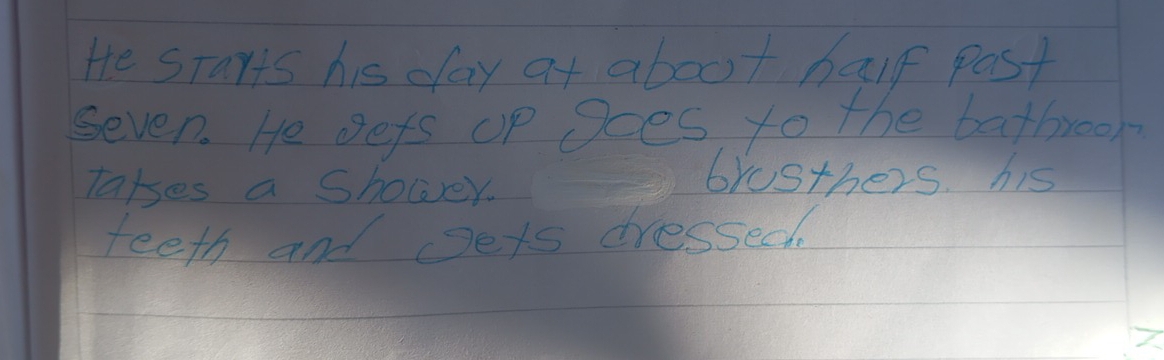 He starts his day at about half past
seven. He gets up goes to the bathroom
takes a shower. brusthers. his
teeth and gets dressed.